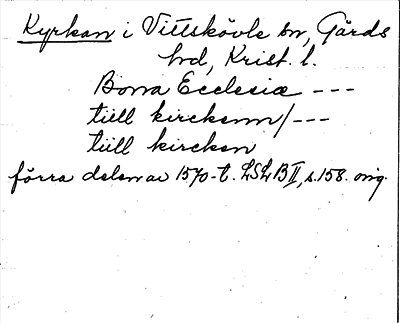 Kyrkan i Vittskövle sn, Gärds
hd, Krist. l.
Bona Ecclesiæ ---
tiill kirckenn/---
tiill kircken
förra delen av 1570-t. LSLB II, s.158. orig.